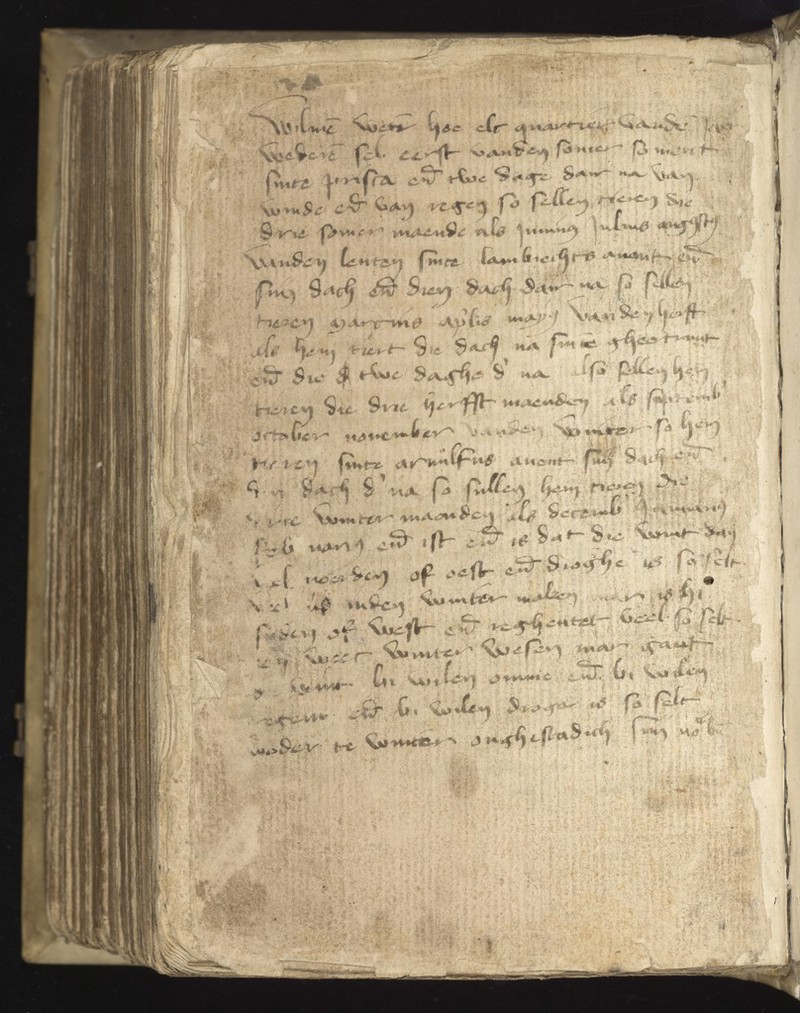 Wilmē wetē hoe elc quartier vandē Jaer
wederē sel eerst vanden somer so merct
sinte prisca eñ twe dage dair na van
winde eñ van regen so sellen tieren die
drie somer maende als Junius Julius augustus
vanden lenten sinte lambrechts auont eñ
sijn dach eñ dien dach dair na so sellen
tieren marcius aplis mayus vanden herfst
als hem tiert die dach na sinte gheertruut
eñ die twe daghe d' na also sellen hem
tieren die drie herfst maenden als septemb'
october nouember vanden winter so hem
tieren sinte arnulfus auent sijn dach eñ
den dach d' na so sullen hem tieren die
drie winter maenden als decemb' Januarius
feb uariꝰ eñ ist eñ is dat die wint dan
wel noerden of oest eñ droghe is so selt
vel ijs inden winter maken mar is hi
suden of west eñ reghentet veel so selt
een weec winter wesen mar gaet
die wint bi wilen omme eñ bi wilen
regent eñ bi wilen droger is so selt
weder te winter onghestadich sijn